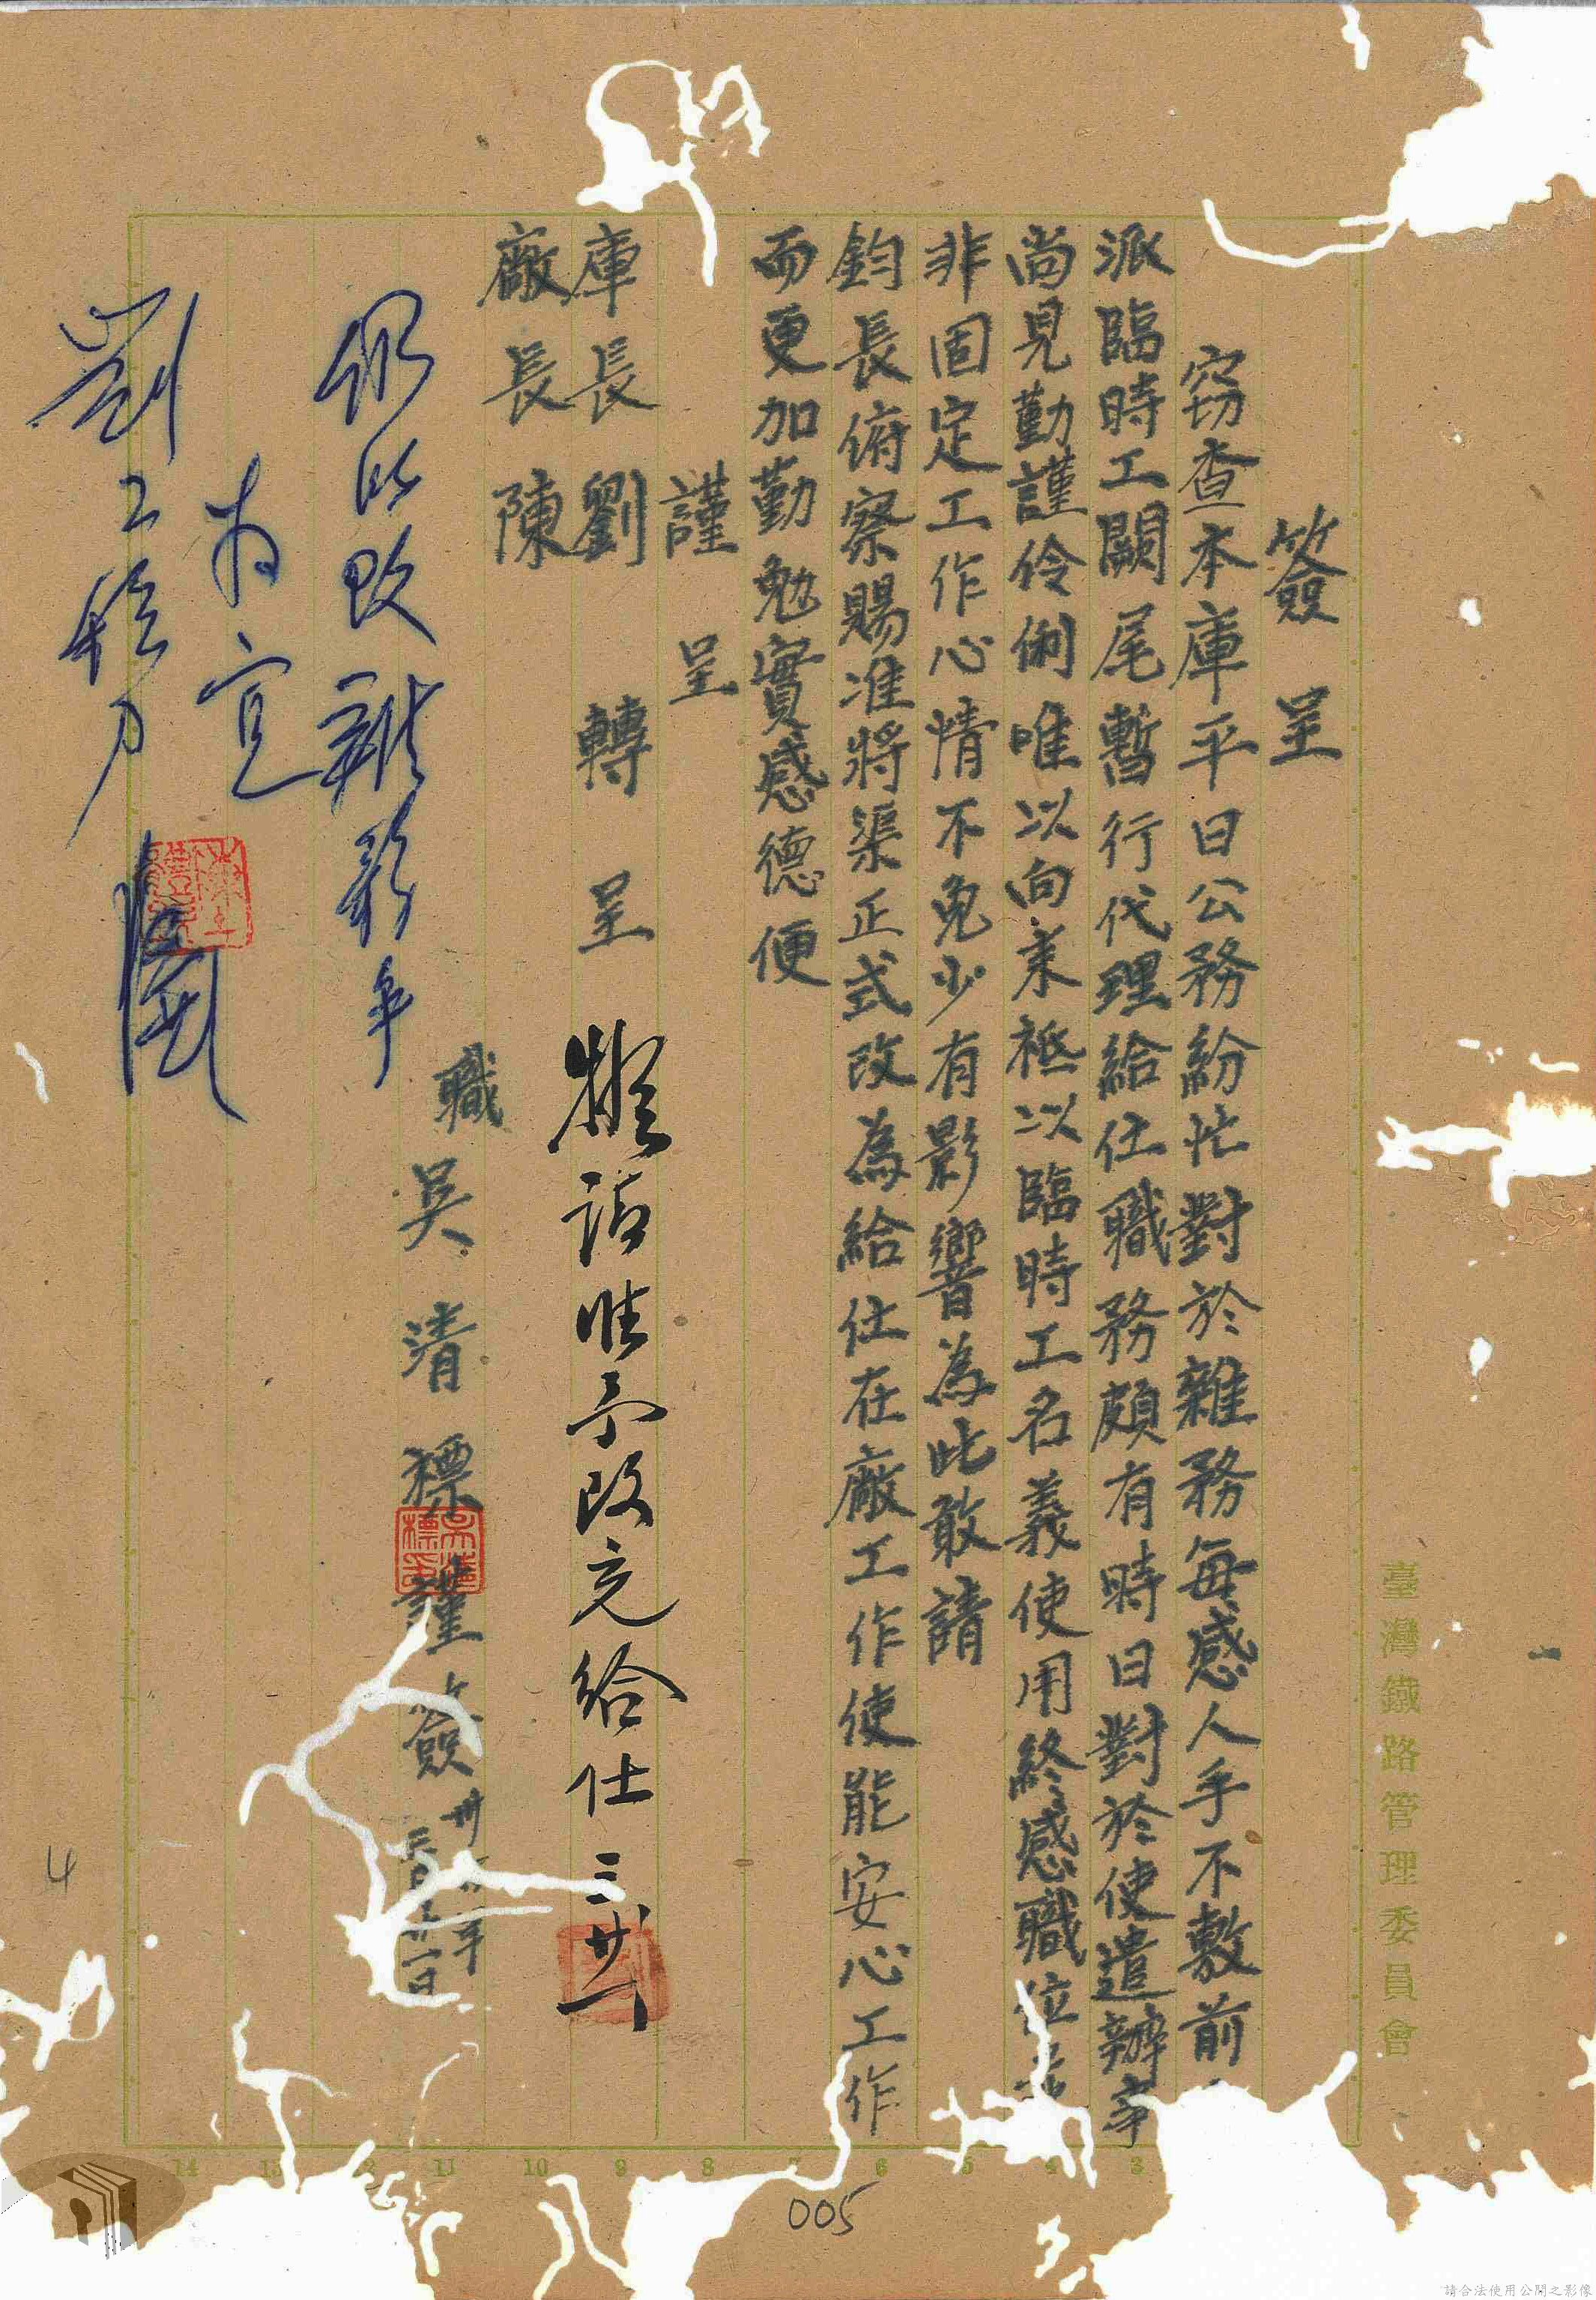 簽呈
窃查本庫平日公務紛忙對於雜務每感人手不敷前
派臨時工闕尾暫行代理給仕職務頗有時日對於使遣辦事
尚見勤謹伶俐唯以向來祗以臨時工名義使用終感職位
非固定工作心情不免少有影響為此敢請
鈞長俯察賜准將渠正式改為給仕在廠工作使能安心工作
而更加勤勉實感德便
謹呈
庫長劉 轉呈
廠長陳
擬請准予改充給仕 三廿一
職吳清標謹簽
卅 年
三月廿一日
仍以改
為宜
劉工務
臺灣鐵路管理委員會
3
4
5
6
7
8
9
10
11
12
13
14
005
4
請合法使用公開之影像